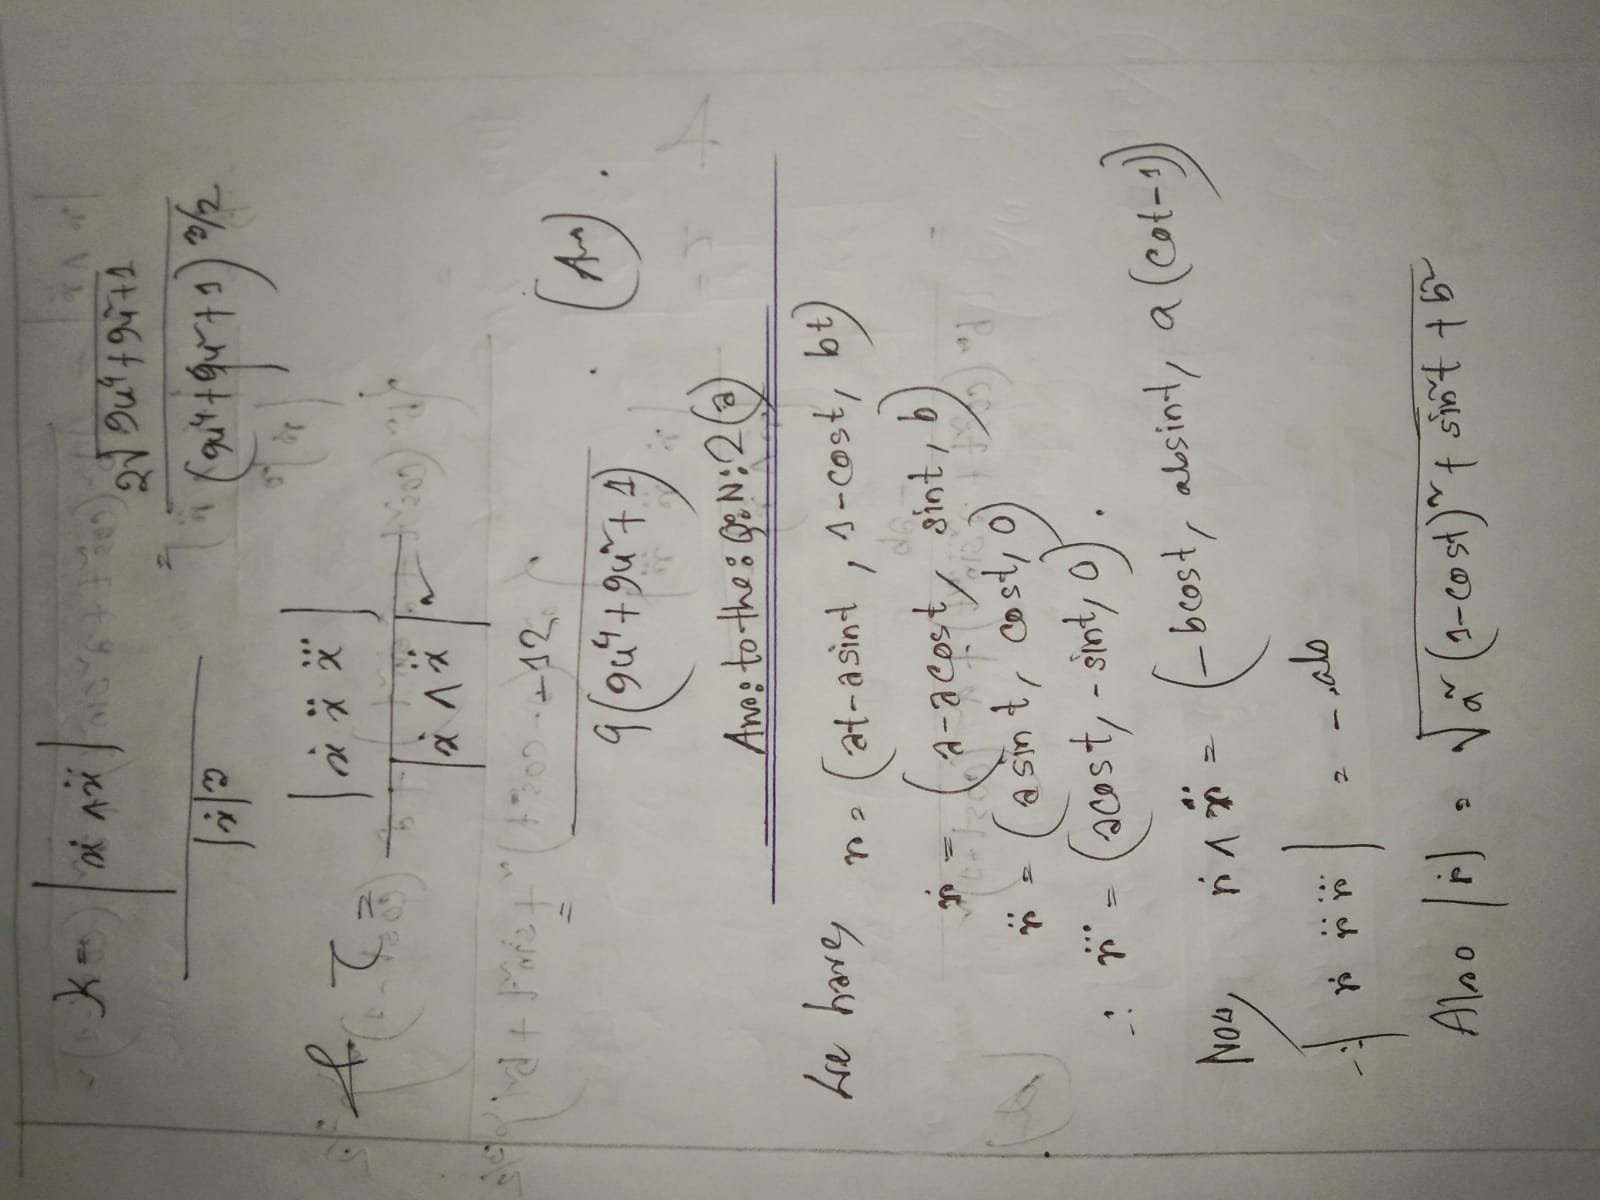 K = |ẋ ∧ ẍ| / |ẋ|³ = 2√(9u⁴+9u²+1) / (9u⁴+9u²+1)^3/2
τ = |ẋ ẍ x⃛| / |ẋ ∧ ẍ|²
= -12 / 9(9u⁴+9u²+1) . (Ans) .
Ans: to the: Q: N: 2(a)
We have, r = (at-asint, 1-cost, bt)
ṙ = (a-acost, sint, b)
r̈ = (asint, cost, 0)
∴ r⃛ = (acost, -sint, 0) .
Now, ṙ ∧ r̈ = (-bcost, absint, a(cot-1))
∴ |ṙ r̈ r⃛| = -ab
Also |ṙ| = √a²(1-cost)²+sin²t+b²